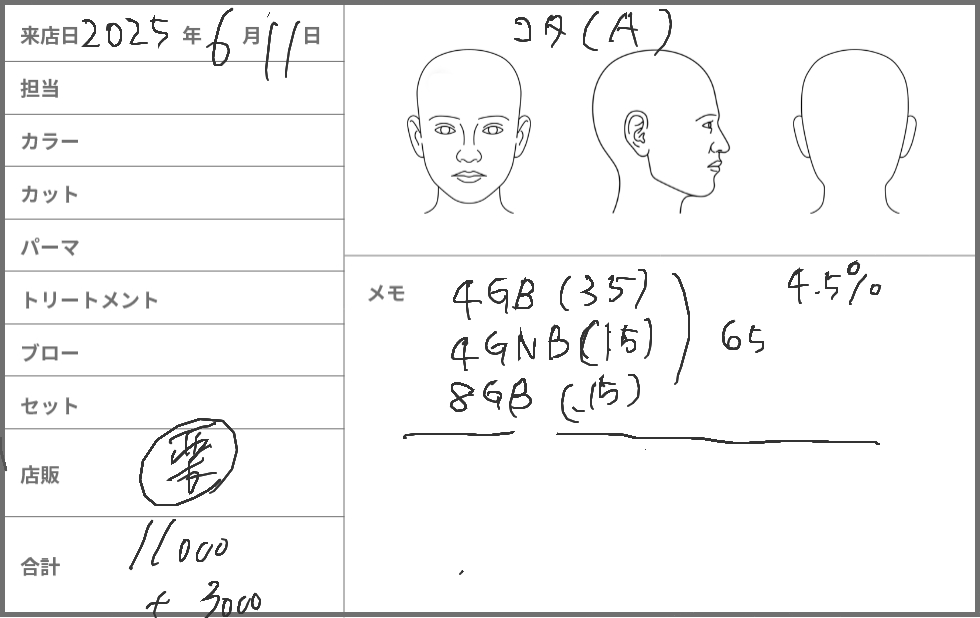 来店日 2025 年 6 月 11 日
担当
カラー
カット
パーマ
トリートメント
ブロー
セット
店販
合計 11000
+ 3000
コタ(A)
メモ
4GB (35)
4GNB (15)
8GB (15)
65
4.5%